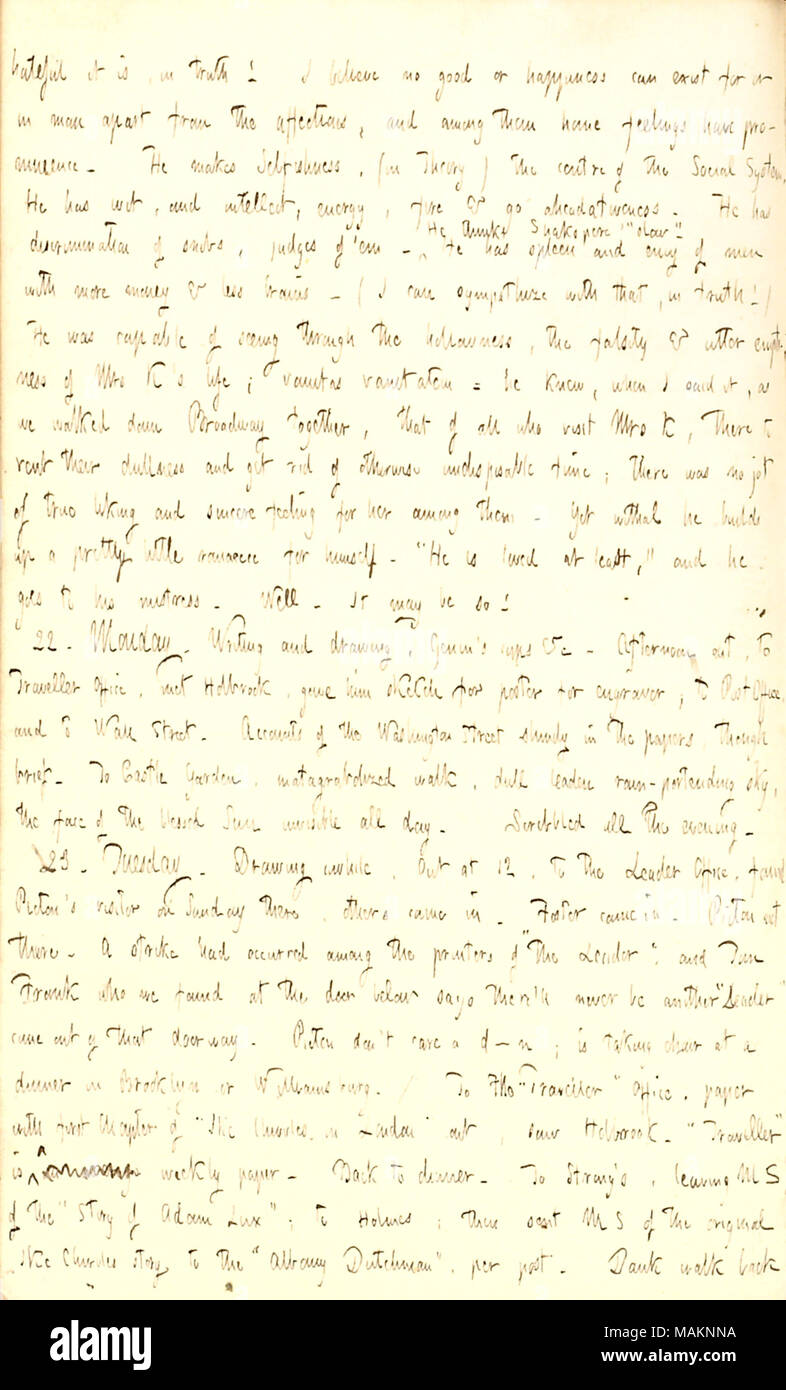 hateful it is, in truth! I believe no good or happiness can exist for or
in man apart from the affections, and among them home feelings have pro-
minence. He makes Selfishness, (in Theory) the centre of the Social System.
He has wit, and intellect, energy, fire & go aheadativeness. He has
discrimination of snobs, judges of 'em - He thinks Shakspere "slow"! He has spleen and envy of men
with more money & less brains - (I can sympathize with that, in truth!)
He was capable of seeing through the hollowness, the falsity & utter empti-
ness of Mrs K's life; vanitas vanitatem = he knew, when I said it, as
we walked down Broadway together, that of all who visit Mrs K, there to
vent their dullness and get rid of otherwise undisposable time; there was no jot
of true liking and sincere feeling for her among them. Yet withal he builds
up a pretty little romance for himself - "He is loved at least," and he
goes to his mistress. Well - it may be so!
22. Monday. Writing and drawing, Genin's caps &c - Afternoon out, to
Traveller Office, met Holbrook, gave him sketch for poster for engraver; to Post Office,
and to Wall Street. Accounts of the Washington Street shindy in the papers, though
brief. To Castle Garden, matagrabolized walk, dull leaden rain-portending sky,
the face of the blessed Sun invisible all day. Scribbled all the evening.
23. Tuesday. Drawing awhile. Out at 12, to the Leader Office, found
Picton's visitor on Sunday there, others came in. Foster came in. Picton not
there. A strike had occurred among the printers of "the Leader", and Tom
Frank who we found at the door below says there'll never be another "Leader"
come out of that doorway. Picton don't care a d—n; is taking chair at a
dinner in Brooklyn or Williamsburg. / To the "Traveller" Office, paper
with first Chapter of "Ike Churles in London" out, saw Holbrook. "Traveller"
is weekly paper. Back to dinner. To Strong's, leaving MS
of the "Story of Adam Lux"; to Holmes; then sent MS of the original
Ike Churles story to the "Albany Dutchman", per post. Dank walk back
alamy
Image ID: MAKNNA
www.alamy.com